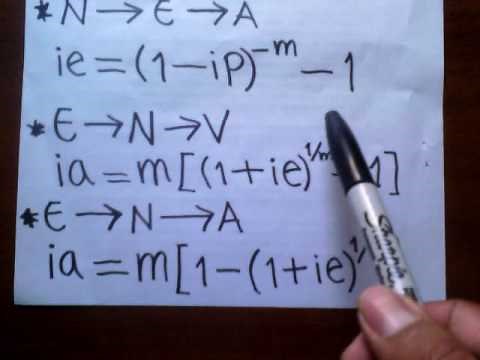 * N → E → A
ie = (1 - ip)^-m - 1
* E → N → V
ia = m[(1 + ie)^1/m - 1]
* E → N → A
ia = m[1 - (1 + ie)^1/
Sharpie